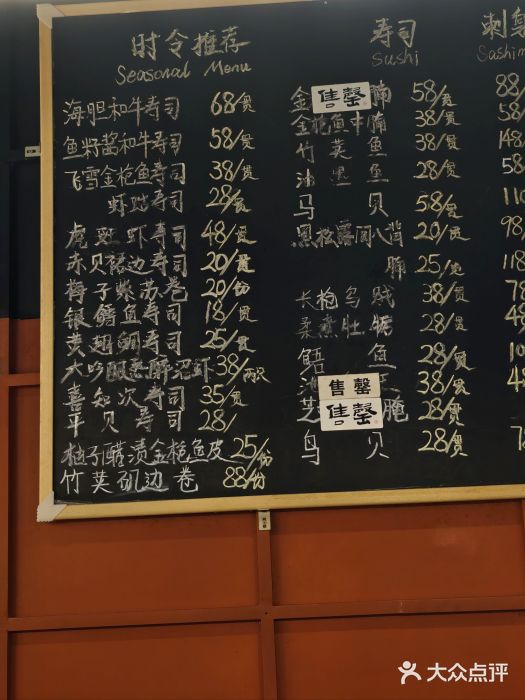 时令推荐
Seasonal Menu
海胆和牛寿司 68/贯
鱼籽酱和牛寿司 58/贯
飞雪金枪鱼寿司 38/贯
寿司 28/贯
虎斑虾寿司 48/贯
赤贝裙边寿司 20/贯
梅子紫苏卷 20/份
银鳕鱼寿司 18/贯
黄翅鲷寿司 25/贯
大吟酿煮 沼虾 38/两只
喜知次寿司 35/贯
平贝寿司 28/
柚子醋渍金枪鱼皮 25/份
竹荚矶边卷 88/份
寿司
Sushi
金 售罄 腩 58/贯
金枪鱼中腩 38/贯
竹荚鱼 38/贯
油 鱼 28/贯
马贝 58/贯
黑松露 八背 20/贯
腩 25/贯
长枪乌贼 38/贯
柔煮 28/贯
鱼 28/贯
售罄 38/贯
芝 售罄 28/贯
鸟贝 28/贯
刺
Sashim
88
58
148
58
110
98
118
78
48
10
48
78
大众点评